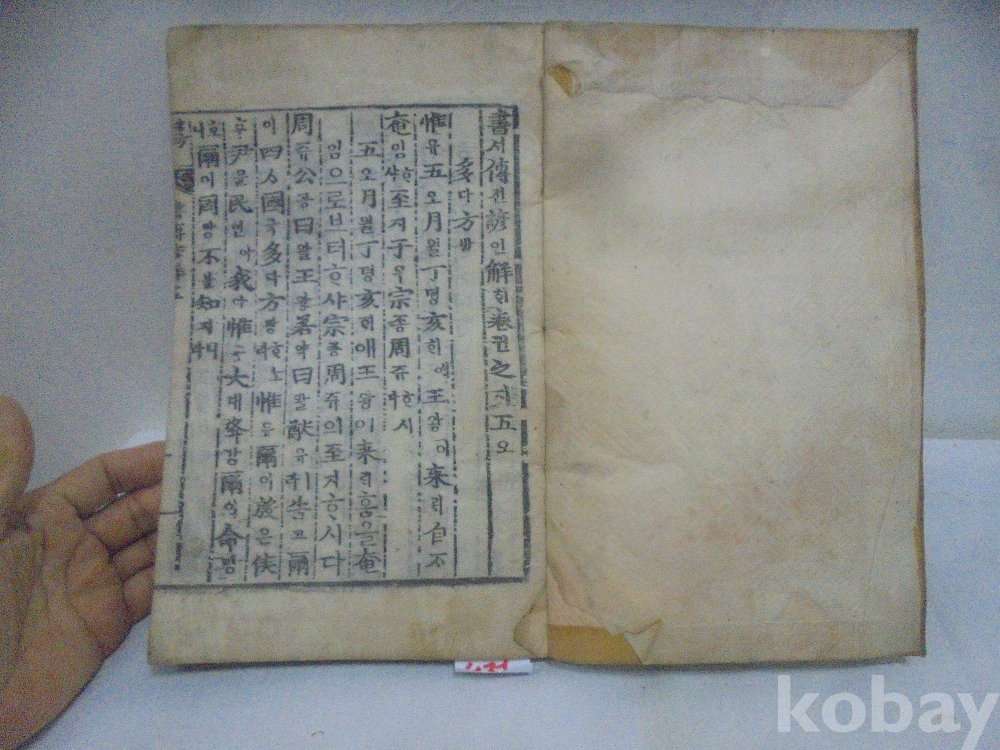 書셔傳젼諺언解ᄒᆡ卷권之지五오
多다方방
惟유五오月월丁뎡亥ᄒᆡ예王왕이來ᄅᆡ自ᄌᆞ
奄엄ᄒᆞ샤至지于우宗종周쥬ᄒᆞ시다
五오月월丁뎡亥ᄒᆡ애王왕이來ᄅᆡ홈을奄
엄으로브터ᄒᆞ샤宗종周쥬의至지ᄒᆞ시다
周쥬公공曰왈王왕若약曰왈猷유라告고爾
이四ᄉᆞ國국多다方방ᄒᆞ노라惟유爾이殷은侯
후尹윤民민아我아惟유大대降강爾이命명
호니爾이罔망不블知지니라
kobay